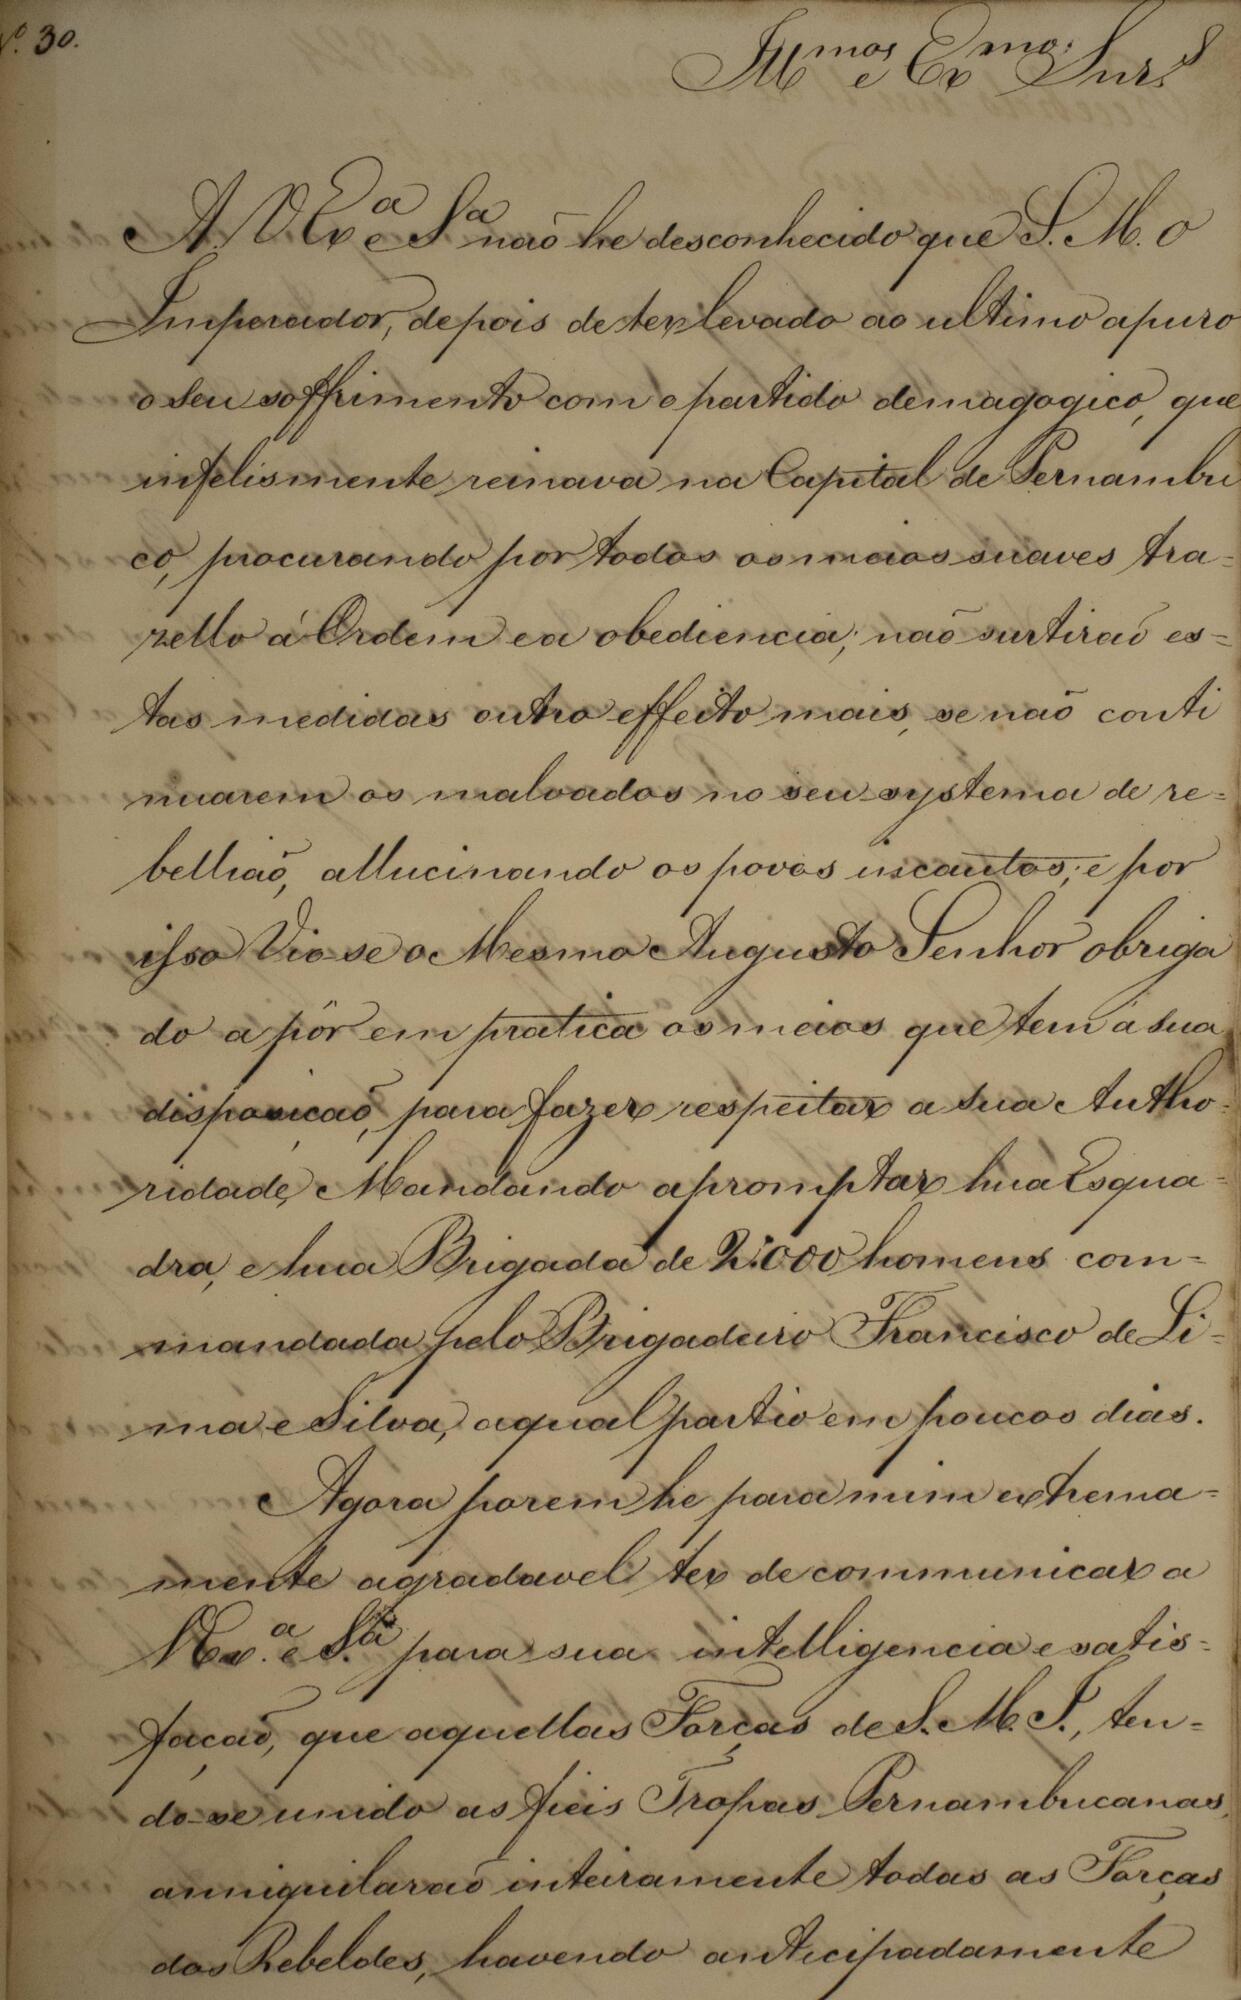 Nº. 30.
Illmos e Exmos Snrs
A. V. Exa e Sa naõ he desconhecido que S. M. O
Imperador, depois de ter levado ao ultimo apuro
o seu soffrimento com o partido demagogico, que
infelismente reinava na Capital de Pernambu
co, procurando por todos os meios suaves tra=
zello á Ordem e a obediencia; naõ surtiraõ es=
tas medidas outro effeito mais, se naõ conti
nuarem os malvados no seu systema de re=
belliaõ, allucinando os povos incautos; e por
isso Vio-se o Mesmo Augusto Senhor obriga
do a pôr em pratica os meios que tem á sua
disposiçaõ, para fazer respeitar a sua Autho=
ridade, Mandando apromptar hua Esqua=
dra, e hua Brigada de 2:000 homens com=
mandada pelo Brigadeiro Francisco de Li=
ma e Silva, a qual partio em poucos dias.
Agora porem he para mim extrema=
mente agradavel ter de communicar a
V Exa. e S.ª para sua intelligencia e satis=
façaõ, que aquellas Forças de S. M. I., ten=
do-se unido as fieis Tropas Pernambucanas,
anniquilaraõ inteiramente todas as Forças
dos Rebeldes, havendo anticipadamente